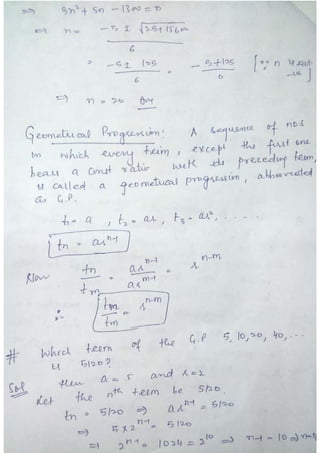 ⇒ 3n² + 5n − 1300 = 0
⇒ n = −5 ± √25+15600
6
= −5 ± 125 = −5+125 [∵ n
6 6
⇒ n = 20 Ans
Geometrical Progression: A sequence of nos
in which every term, except the first one
bears a const ratio with its preceding term,
is called a geometrical progression, abbreviated
as G.P.
t₁ = a , t₂ = ar , t₃ = ar², . . . . .
tn = arⁿ⁻¹
Now tn = arⁿ⁻¹ = rⁿ⁻ᵐ
tm arᵐ⁻¹
∴ tn = rⁿ⁻ᵐ
tm
# Which term of the G.P 5, 10, 20, 40, ...
is 5120?
Sol Here a = 5 and r = 2
Let the nth term be 5120.
tn = 5120 ⇒ arⁿ⁻¹ = 5120
⇒ 5 × 2ⁿ⁻¹ = 5120
⇒ 2ⁿ⁻¹ = 1024 = 2¹⁰ ⇒ n−1 = 10 ⇒ n=11